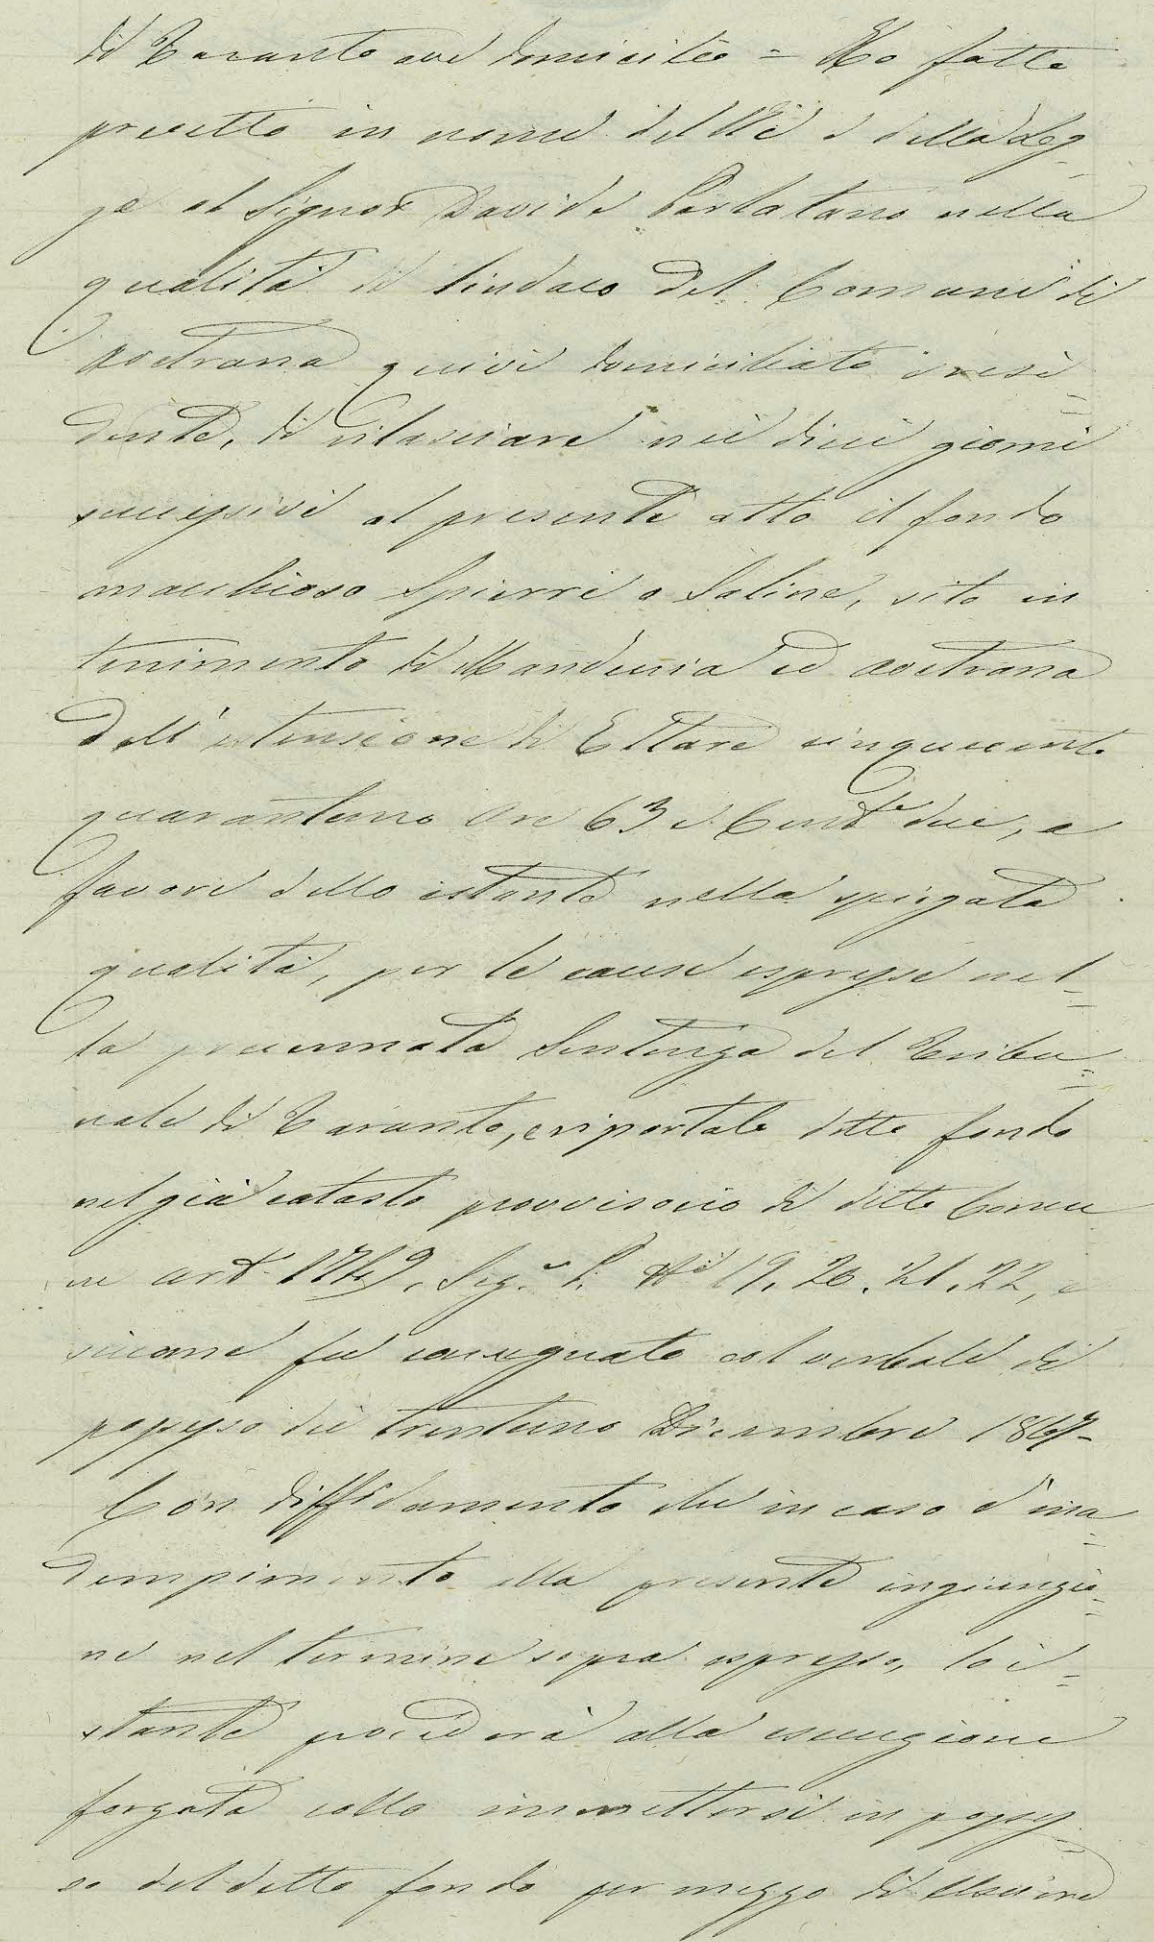 di Taranto ove domicilio = Ho fatto
precetto in nome del Rè e della Leg-
ge al Signor Davide Parlatano nella
qualità di Sindaco del Comune di
Avetrana quivi domiciliato e resi=
dente, di rilasciare nei dieci giorni
successivi al presente atto il fondo
macchioso Spierri o Saline, sito in
tenimento di Manduria ed Avetrana
dell'estensione di Ettare cinquecento
quarantuno Are 63 e Cent.e due, a
favore dello istante nella spiegata
qualità, per le cause espresse nel=
la precennata Sentenza del Tribu=
nale di Taranto, e riportato detto fondo
nel già catasto provvisorio di detto Comu
ne art. 1749, Sez.e S. Ni 19, 20, 21, 22, e
siccome fu consegnato col verbale di
possesso del trentuno Dicembre 1867-
Con diffidamento che in caso d'ina=
dempimento alla presente ingiunzio=
ne nel termine sopra espresso, lo i=
stante procederà alla esecuzione
forzata collo immettersi in posses=
so del detto fondo per mezzo di Usciere